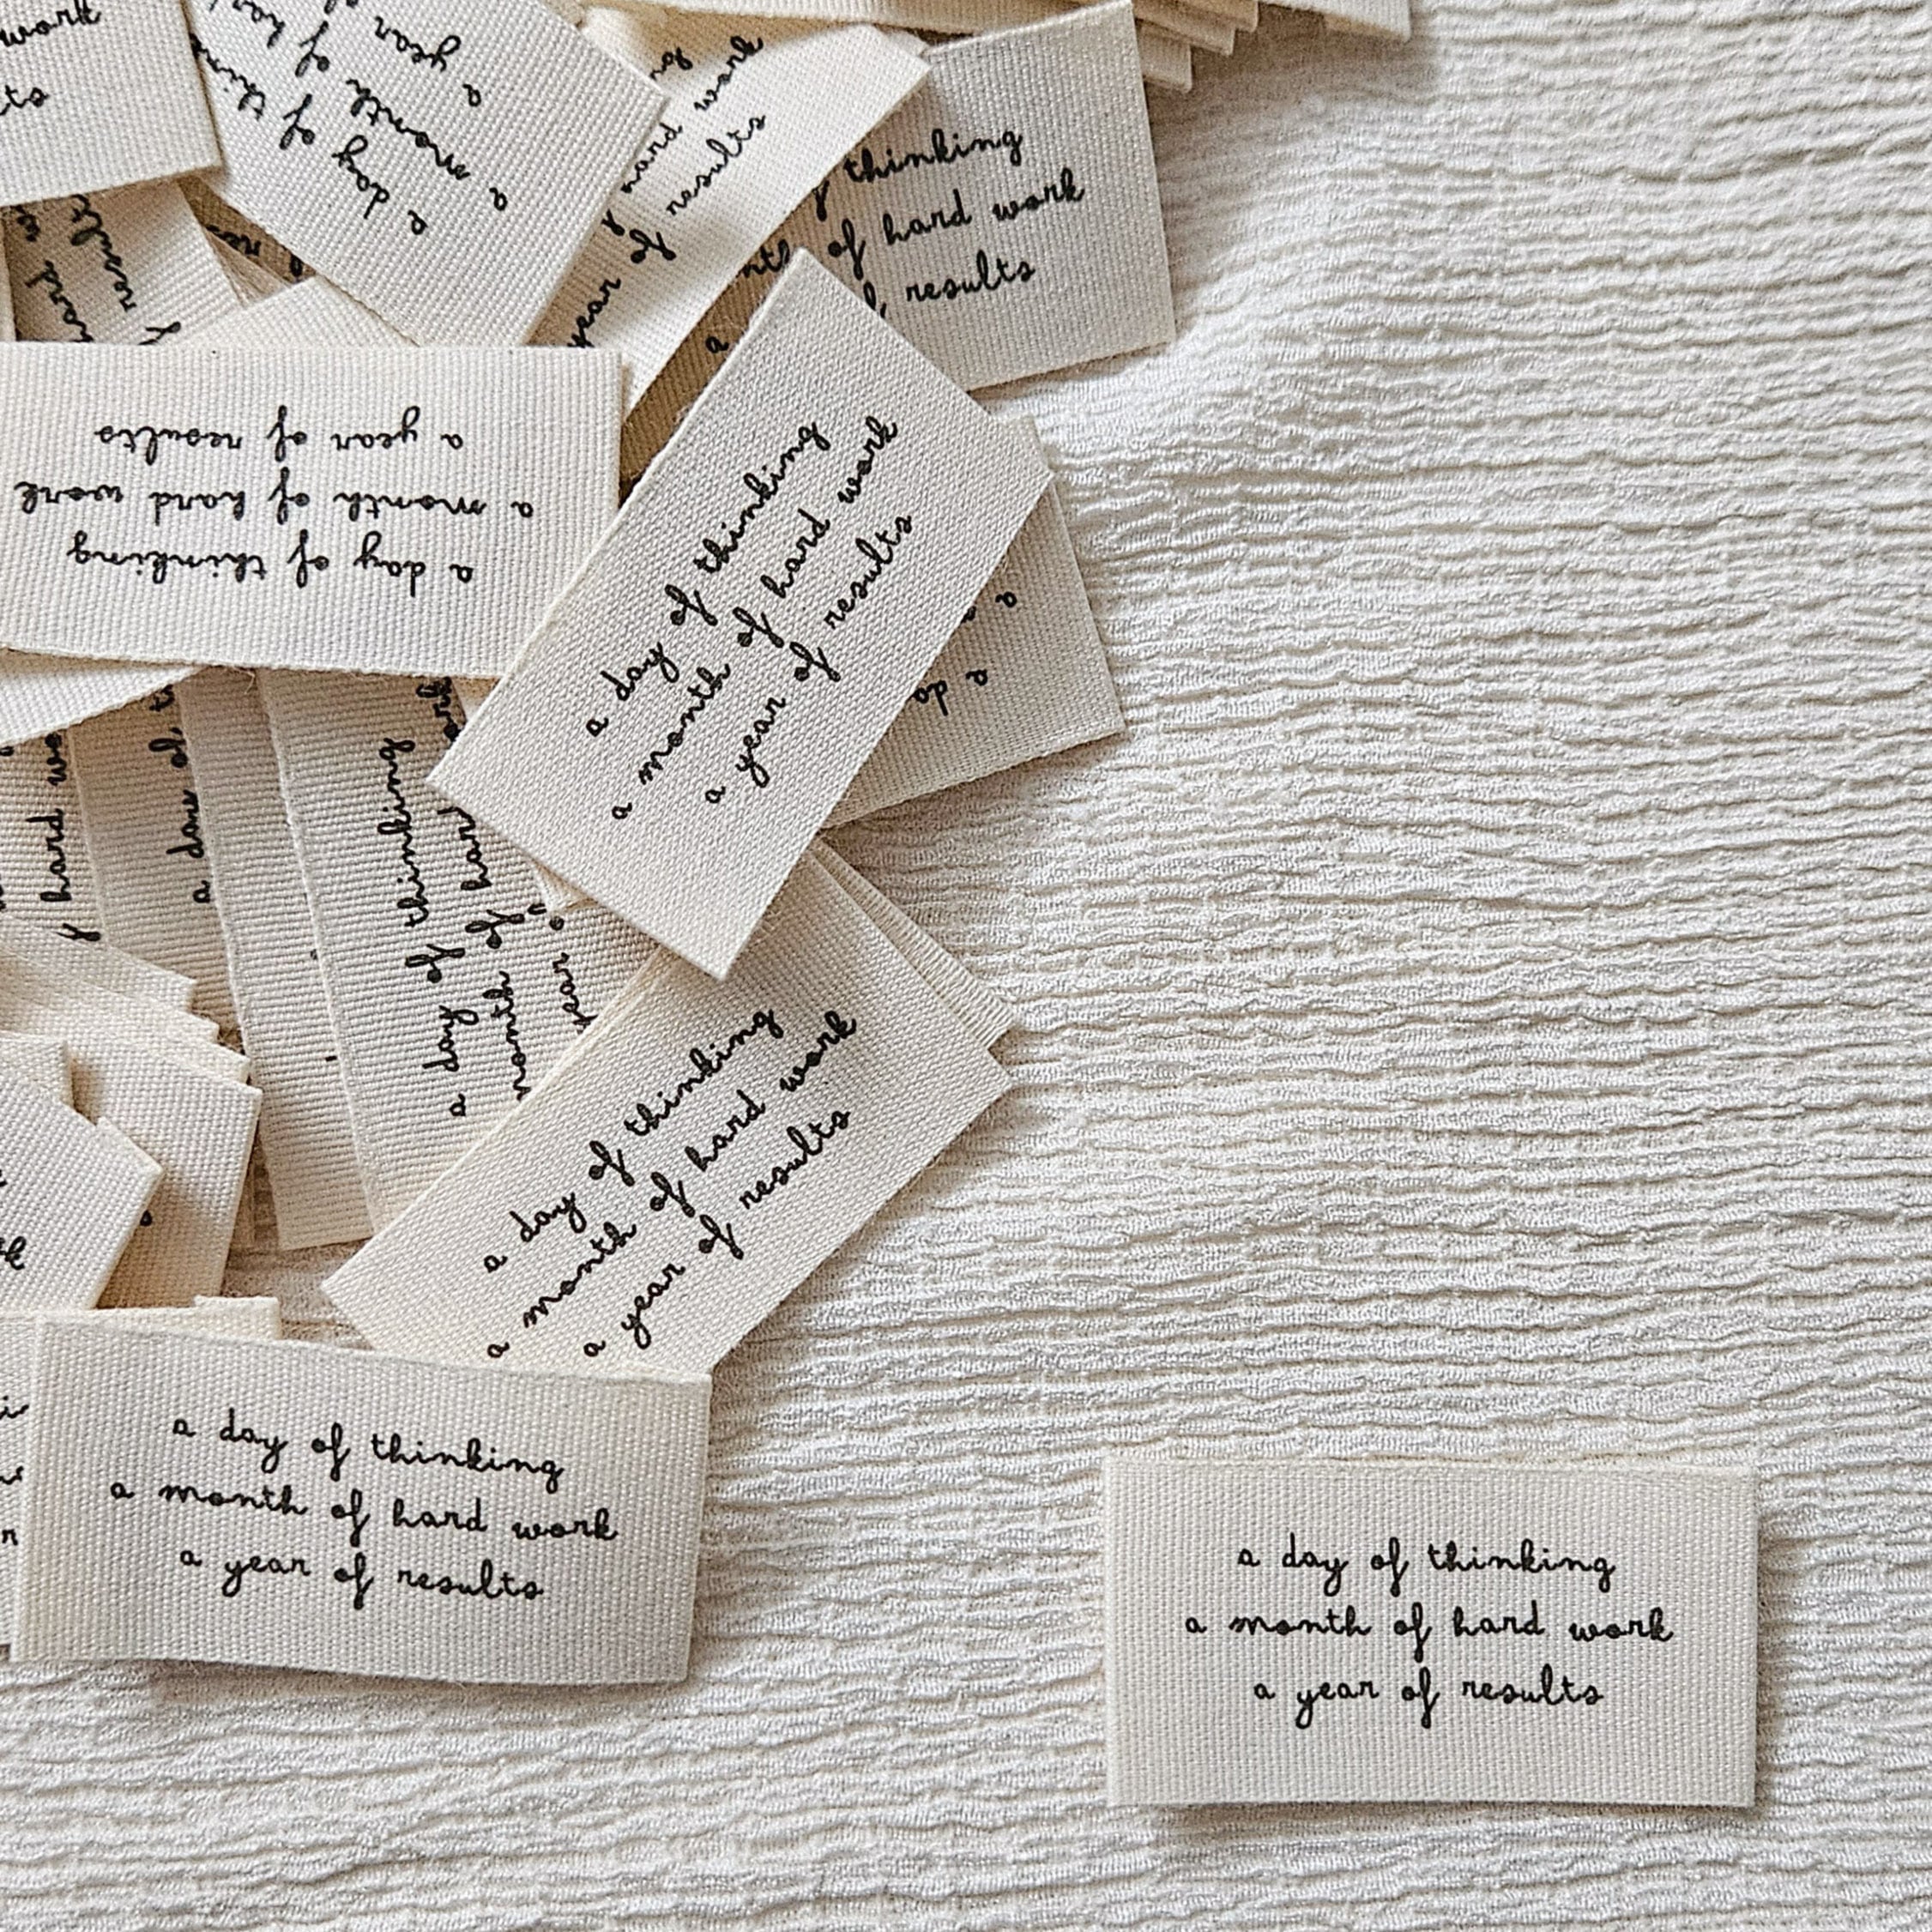 work
a day of
a month of
a year
hard work
results
year of
thinking
of hard work
results
a
a year of results
a month of hard work
a day of thinking
a day of thinking
a month of hard work
a year of results
a
a
hard
a
a day of thinking
month of hard
year
a day of thinking
a month of hard work
a year of results
a day of thinking
a month of hard work
a year of results
a day of thinking
a month of hard work
a year of results